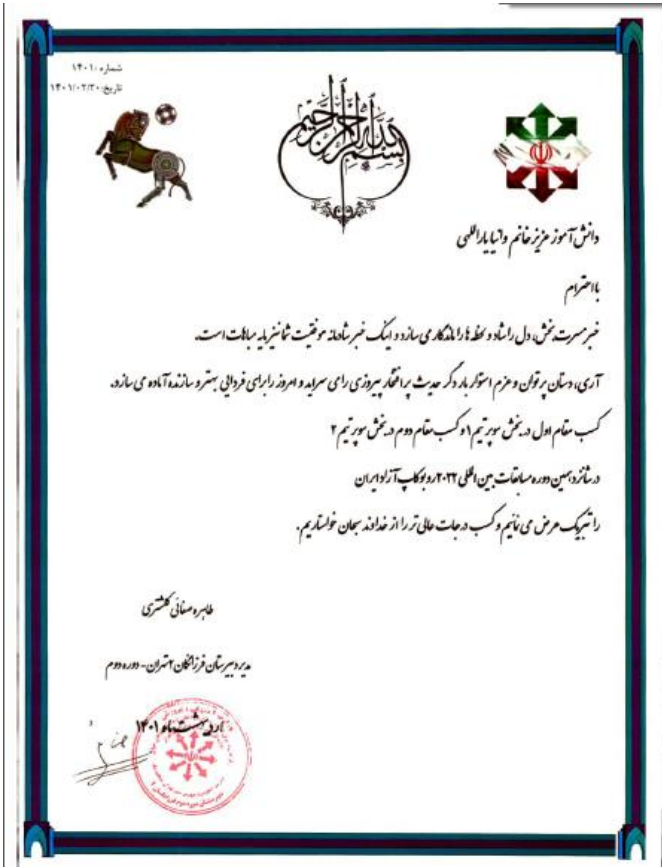 شماره :۱۴۰۱
تاریخ:۱۴۰۱/۰۲/۲۰
بسم الله الرحمن الرحیم
دانش آموز عزیز خانم وانیا یاراللهی
بااحترام
خبر مسرت بخش، دل را شاد و لحظه ها را ماندگار می سازد و اینک خبر شادمانه موفقیت شما نیز مایه مباهات است.
آری، دستان پرتوان و عزم استوار بار دگر حدیث پر افتخار پیروزی را می سراید و امروز را برای فردایی بهتر و سازنده آماده می سازد.
کسب مقام اول در بخش سوپر تیم ۱ و کسب مقام دوم در بخش سوپر تیم ۲
در شانزدهمین دوره مسابقات بین المللی ۲۰۲۲ روبوکاپ آزاد ایران
را تبریک عرض می نمائیم و کسب درجات عالی تر را از خداوند سبحان خواستاریم.
طاهره صفائی کلشتری
مدیر دبیرستان فرزانگان ۲ تهران - دوره دوم
اردیبهشت ماه ۱۴۰۱